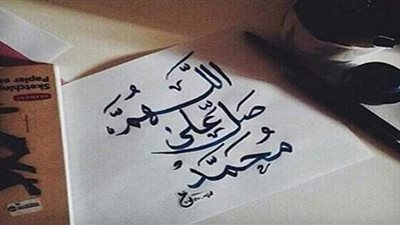 اللَّهُمَّ
صَلِّ عَلَى
مُحَمَّدْ
Sketching
Papier